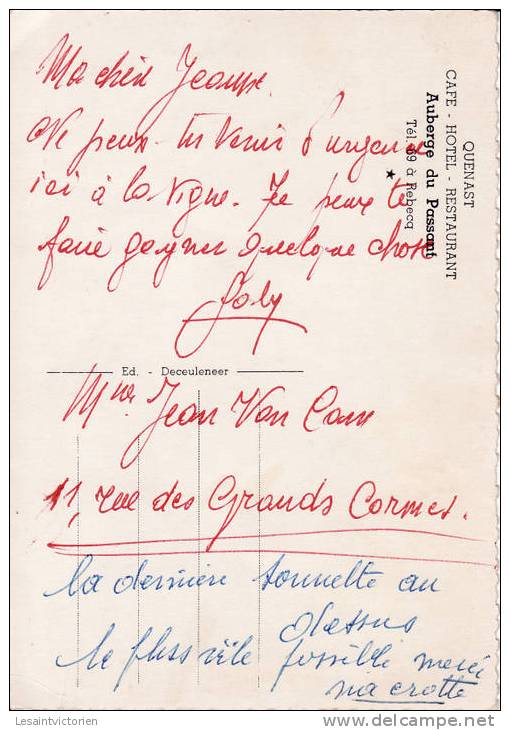 QUENAST
CAFE - HOTEL - RESTAURANT
Auberge du Passant
Tél. 69 à Rebecq
Ma chère Jeanne.
Ne peux-tu venir d'urgence
ici à la vigne. Je peux te
faire gagner quelque chose
Ed. - Deceuleneer
Mme Jean Van
11, rue des Grands Cormes.
la dernière sonnette au
dessus
le plus vite possible merci
ma crotte
Lesaintvictorien
delcampe.net